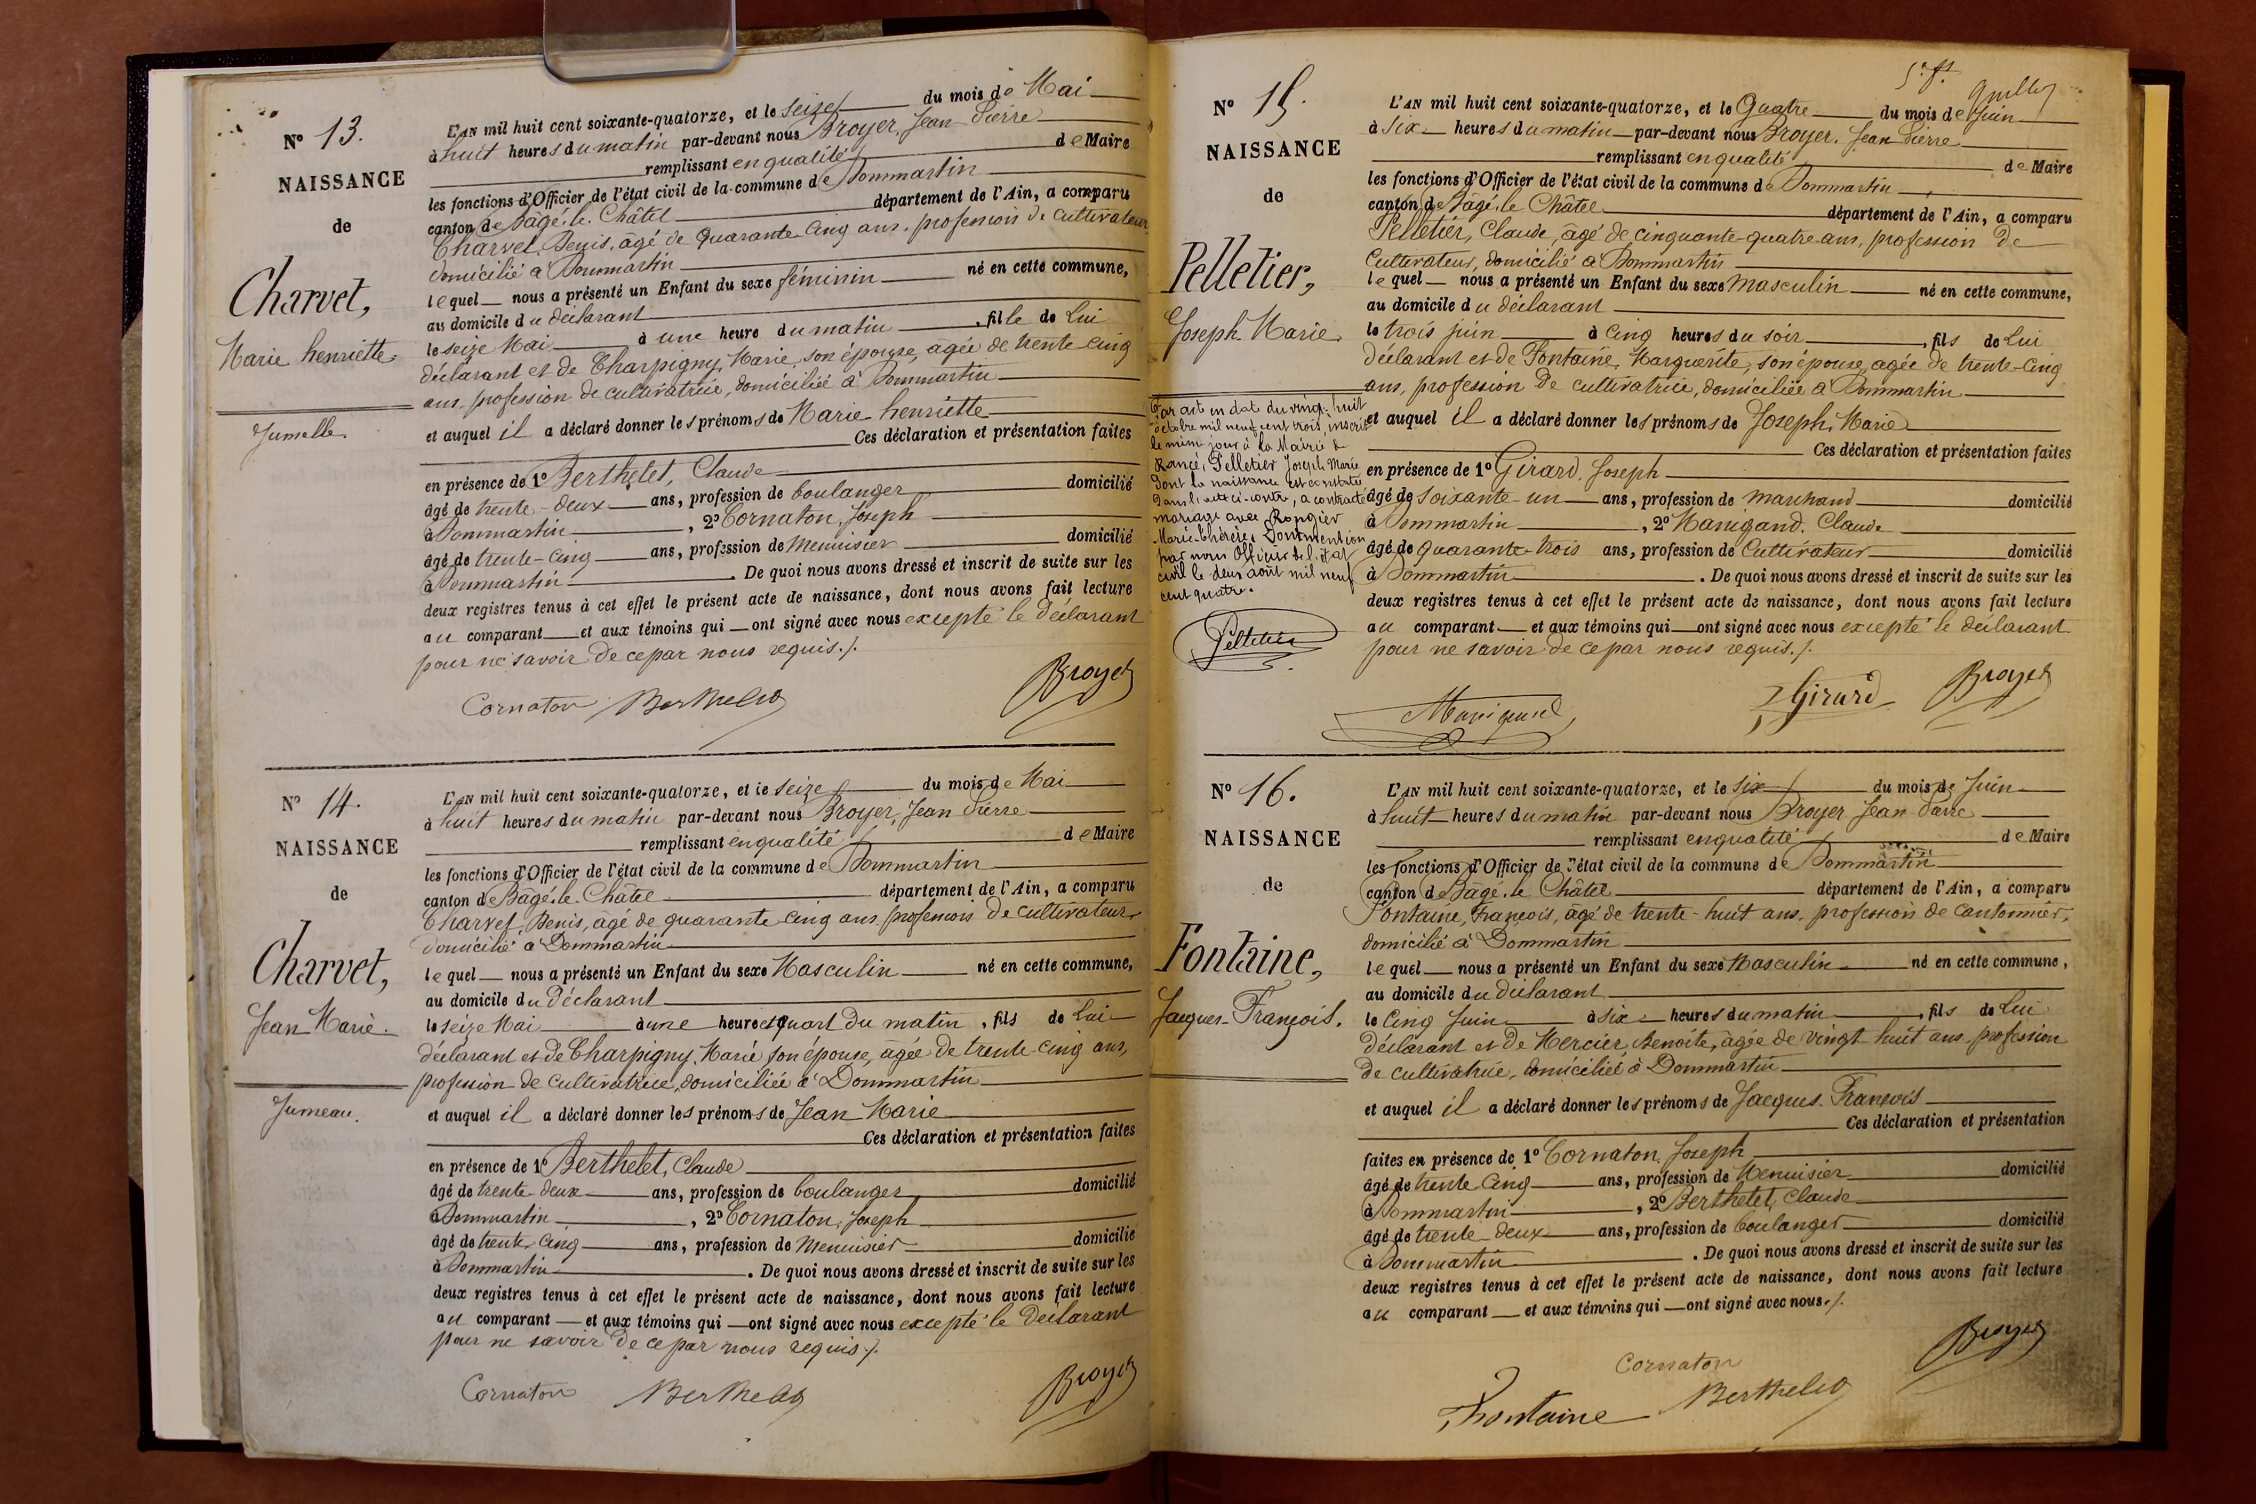 du mois de Mai
L'AN mil huit cent soixante-quatorze, et le seize
à huit heures du matin par-devant nous Broyer, Jean Pierre
remplissant en qualité de Maire
les fonctions d'Officier de l'état civil de la commune de Dommartin
canton de Bâgé-le-Châtel département de l'Ain, a comparu
Charvet, Denis, âgé de Quarante-cinq ans, profession de cultivateur
domicilié à Dommartin
lequel nous a présenté un Enfant du sexe féminin né en cette commune,
au domicile du déclarant
le seize Mai à une heure du matin, fille de Lui
déclarant et de Charpigny, Marie, son épouse, agée de trente-cinq
ans, profession de cultivatrice, domiciliée à Dommartin
et auquel il a déclaré donner les prénoms de Marie-henriette
Ces déclaration et présentation faites
en présence de 1º Berthelet, Claude
âgé de trente-deux ans, profession de boulanger domicilié
à Dommartin, 2º Cornaton, Joseph
âgé de trente-cinq ans, profession de Menuisier domicilié
à Dommartin. De quoi nous avons dressé et inscrit de suite sur les
deux registres tenus à cet effet le présent acte de naissance, dont nous avons fait lecture
au comparant et aux témoins qui ont signé avec nous excepté le déclarant
pour ne savoir de ce par nous requis./.
Cornaton Berthelet Broyer
Nº 13.
NAISSANCE
de
Charvet,
Marie henriette
Jumelle.
Nº 14.
NAISSANCE
de
Charvet,
Jean Marie.
Jumeau.
L'AN mil huit cent soixante-quatorze, et le seize du mois de Mai
à huit heures du matin par-devant nous Broyer, Jean Pierre
remplissant en qualité de Maire
les fonctions d'Officier de l'état civil de la commune de Dommartin
canton de Bâgé-le-Châtel département de l'Ain, a comparu
Charvet, Denis, âgé de quarante-cinq ans, profession de cultivateur
domicilié à Dommartin
lequel nous a présenté un Enfant du sexe Masculin né en cette commune,
au domicile du déclarant
le seize Mai à une heure et quart du matin, fils de Lui
déclarant et de Charpigny, Marie son épouse, âgée de trente-cinq ans,
profession de cultivatrice, domiciliée à Dommartin
et auquel il a déclaré donner les prénoms de Jean Marie
Ces déclaration et présentation faites
en présence de 1º Berthelet, Claude
âgé de trente-deux ans, profession de boulanger domicilié
à Dommartin, 2º Cornaton, Joseph
âgé de trente-cinq ans, profession de Menuisier domicilié
à Dommartin. De quoi nous avons dressé et inscrit de suite sur les
deux registres tenus à cet effet le présent acte de naissance, dont nous avons fait lecture
au comparant et aux témoins qui ont signé avec nous excepté le déclarant
pour ne savoir de ce par nous requis./.
Cornaton Berthelet Broyer
Nº 15.
NAISSANCE
de
Pelletier,
Joseph Marie.
Par acte en date du vingt-huit
octobre mil neuf cent trois, inscrit
le même jour à la Mairie de
Rancé, Pelletier Joseph Marie
dont la naissance est constatée
dans l'acte ci-contre, a contracté
mariage avec Rongier
Marie Thérèse. Dont mention
par nous Officier de l'état
civil le deux août mil neuf
cent quatre.
Pelletier
L'AN mil huit cent soixante-quatorze, et le Quatre du mois de Juin
à six heures du matin par-devant nous Broyer, Jean Pierre
remplissant en qualité de Maire
les fonctions d'Officier de l'état civil de la commune de Dommartin
canton de Bâgé-le-Châtel département de l'Ain, a comparu
Pelletier, Claude, âgé de cinquante-quatre ans, profession de
Cultivateur, domicilié à Dommartin
lequel nous a présenté un Enfant du sexe Masculin né en cette commune,
au domicile du déclarant
le trois juin à cinq heures du soir, fils de Lui
déclarant et de Fontaine, Marguerite, son épouse, agée de trente-cinq
ans, profession de cultivatrice, domiciliée à Dommartin
et auquel il a déclaré donner les prénoms de Joseph, Marie
Ces déclaration et présentation faites
en présence de 1º Girard, Joseph
âgé de soixante-un ans, profession de marchand domicilié
à Dommartin, 2º Manigand, Claude
âgé de quarante-trois ans, profession de Cultivateur domicilié
à Dommartin. De quoi nous avons dressé et inscrit de suite sur les
deux registres tenus à cet effet le présent acte de naissance, dont nous avons fait lecture
au comparant et aux témoins qui ont signé avec nous excepté le déclarant
pour ne savoir de ce par nous requis./.
Manigand Girard Broyer
Nº 16.
NAISSANCE
de
Fontaine,
Jacques-François.
L'AN mil huit cent soixante-quatorze, et le six du mois de Juin
à huit heures du matin par-devant nous Broyer Jean Pierre
remplissant en qualité de Maire
les fonctions d'Officier de l'état civil de la commune de Dommartin
canton de Bâgé-le-Châtel département de l'Ain, a comparu
Fontaine, François, âgé de trente-huit ans, profession de cantonnier,
domicilié à Dommartin
lequel nous a présenté un Enfant du sexe Masculin né en cette commune,
au domicile du déclarant
le cinq Juin à six heures du matin, fils de Lui
déclarant et de Mercier, Benoite, âgée de vingt-huit ans, profession
de cultivatrice, domiciliée à Dommartin
et auquel il a déclaré donner les prénoms de Jacques-François
Ces déclaration et présentation
faites en présence de 1º Cornaton, Joseph
âgé de trente cinq ans, profession de Menuisier domicilié
à Dommartin, 2º Berthelet, Claude
âgé de trente-deux ans, profession de boulanger domicilié
à Dommartin. De quoi nous avons dressé et inscrit de suite sur les
deux registres tenus à cet effet le présent acte de naissance, dont nous avons fait lecture
au comparant et aux témoins qui ont signé avec nous./.
Cornaton Broyer
Fontaine Berthelet